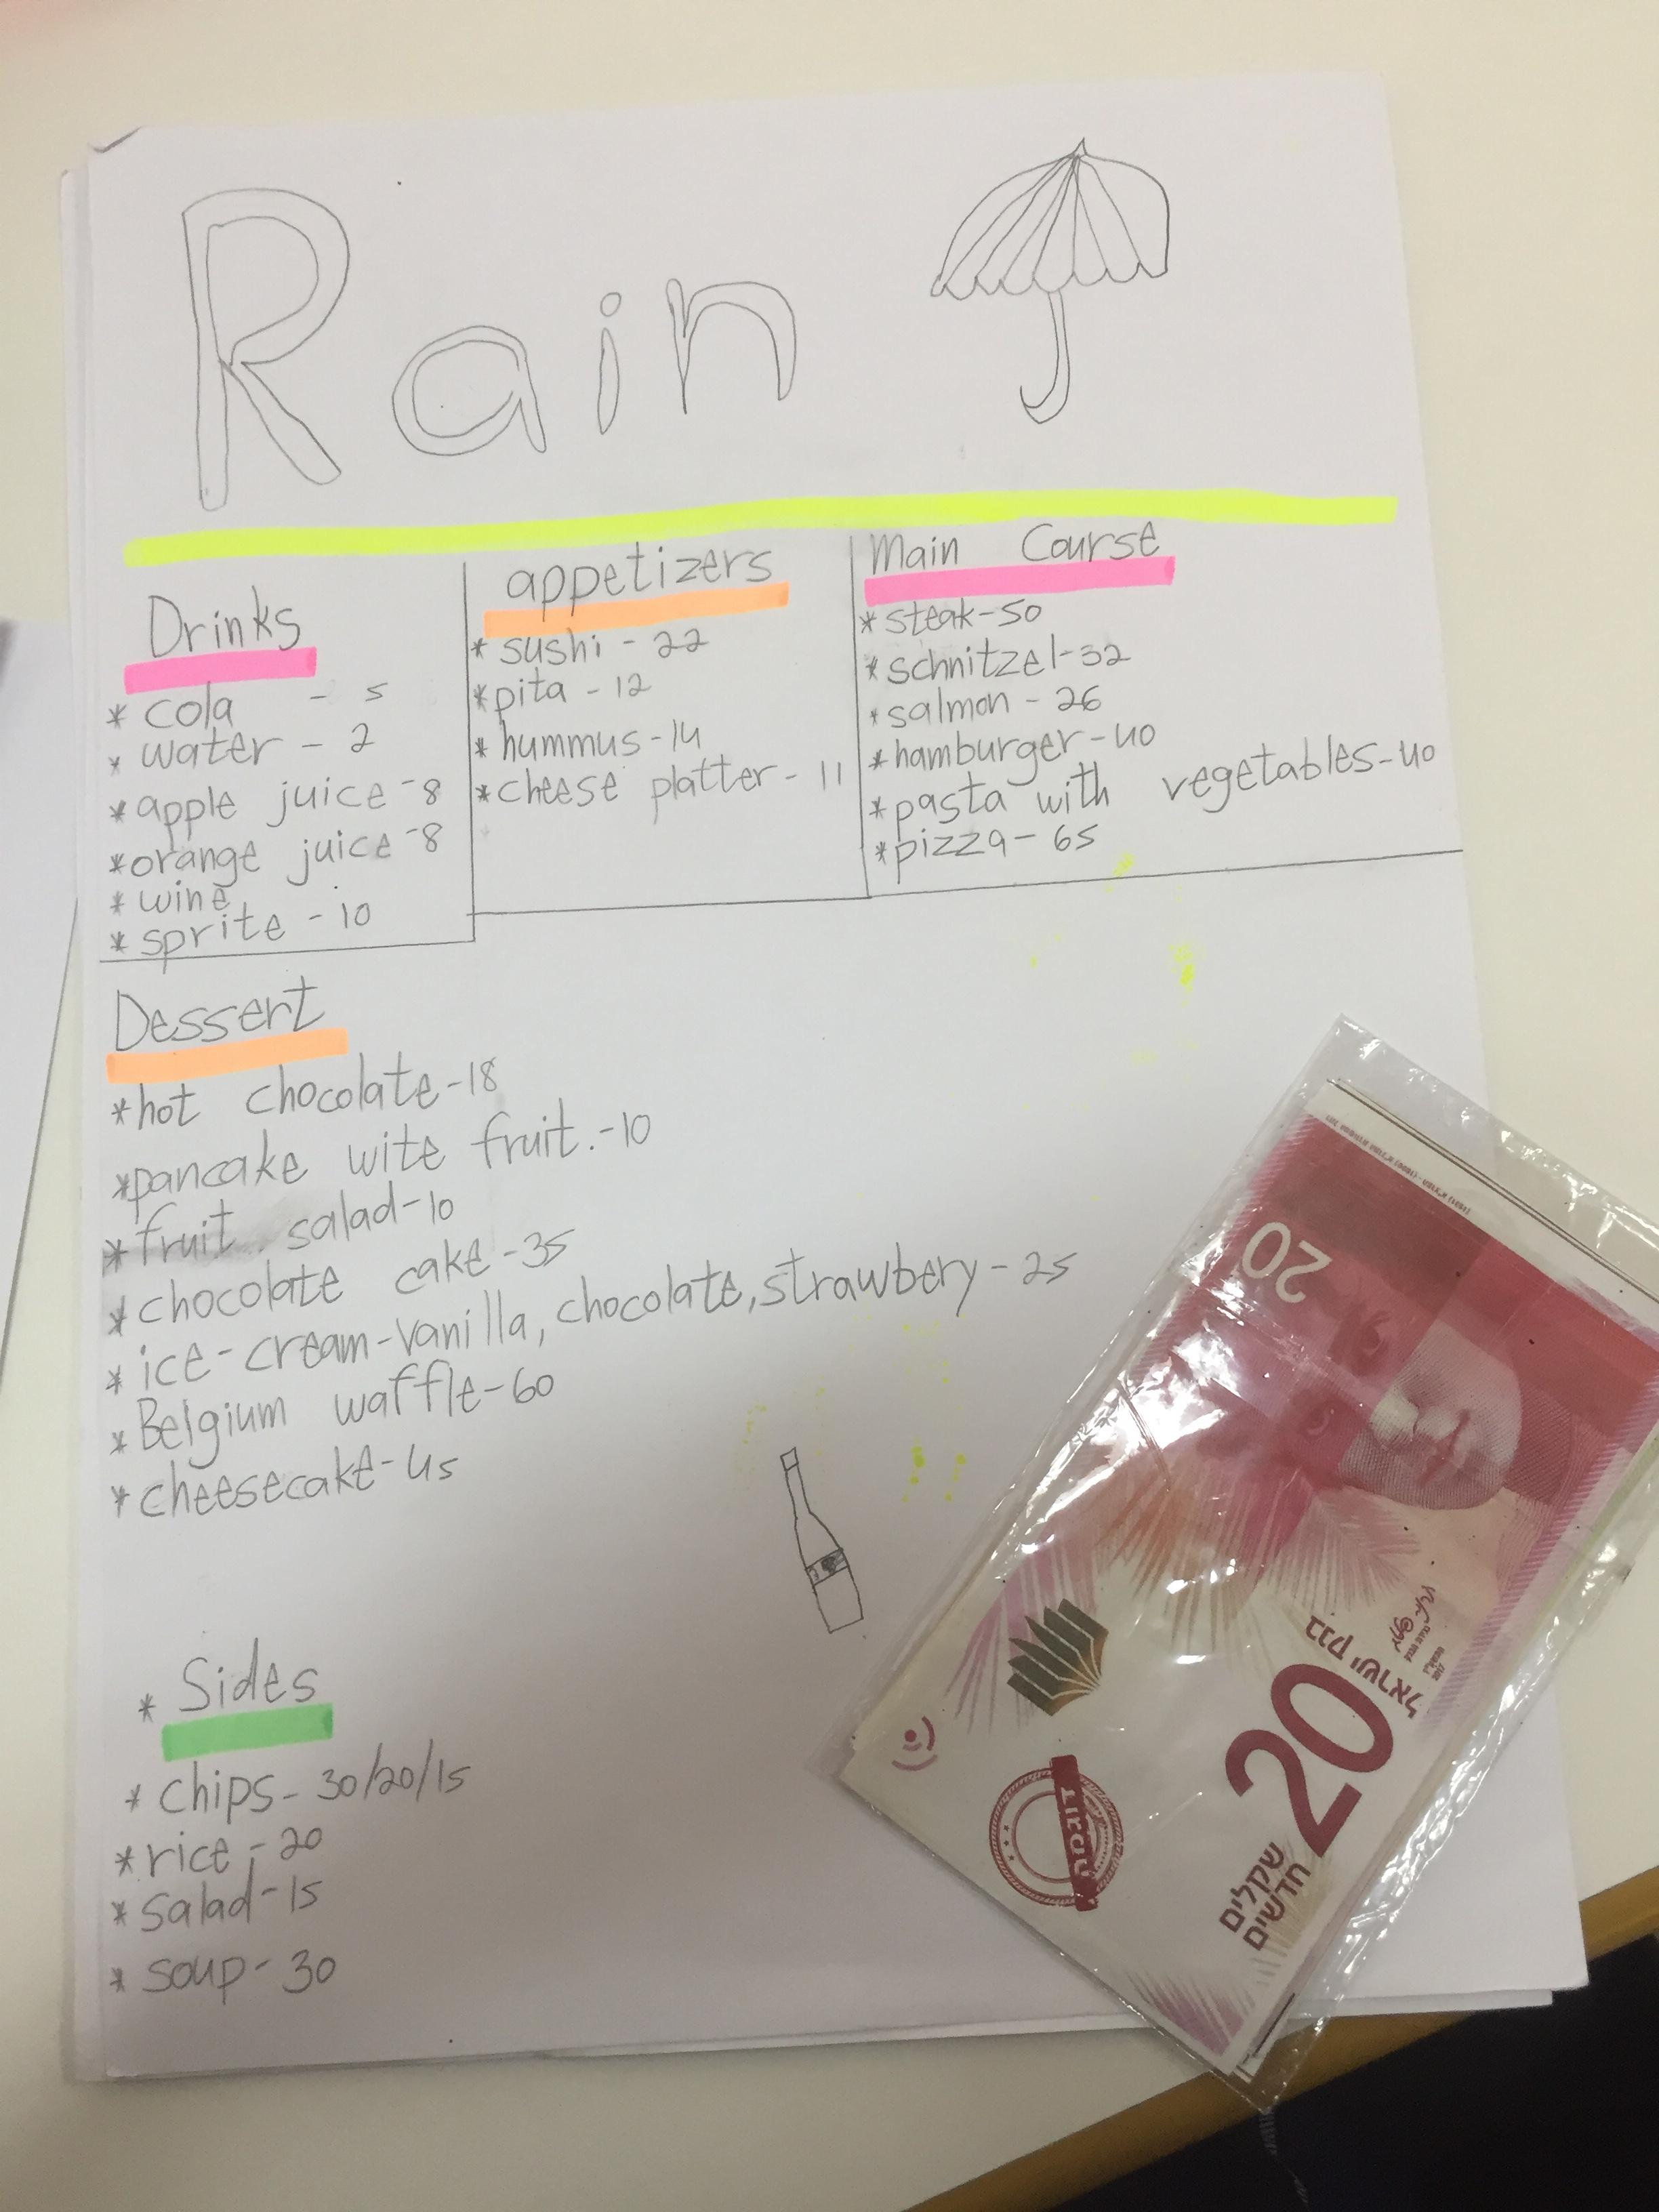 Rain
Drinks
* cola - 5
* water - 2
* apple juice - 8
* orange juice - 8
* wine
* sprite - 10
appetizers
* sushi - 22
* pita - 12
* hummus - 14
* cheese platter - 11
Main Course
* steak - 50
* schnitzel - 32
* salmon - 26
* hamburger - 40
* pasta with vegetables - 40
* pizza - 65
Dessert
* hot chocolate - 18
* pancake wite fruit. - 10
* fruit salad - 10
* chocolate cake - 35
* ice-cream - vanilla, chocolate, strawbery - 25
* Belgium waffle - 60
* cheesecake - 45
* Sides
* chips - 30/20/15
* rice - 20
* salad - 15
* soup - 30
20
בנק ישראל
20
שקלים
חדשים
דוגמה